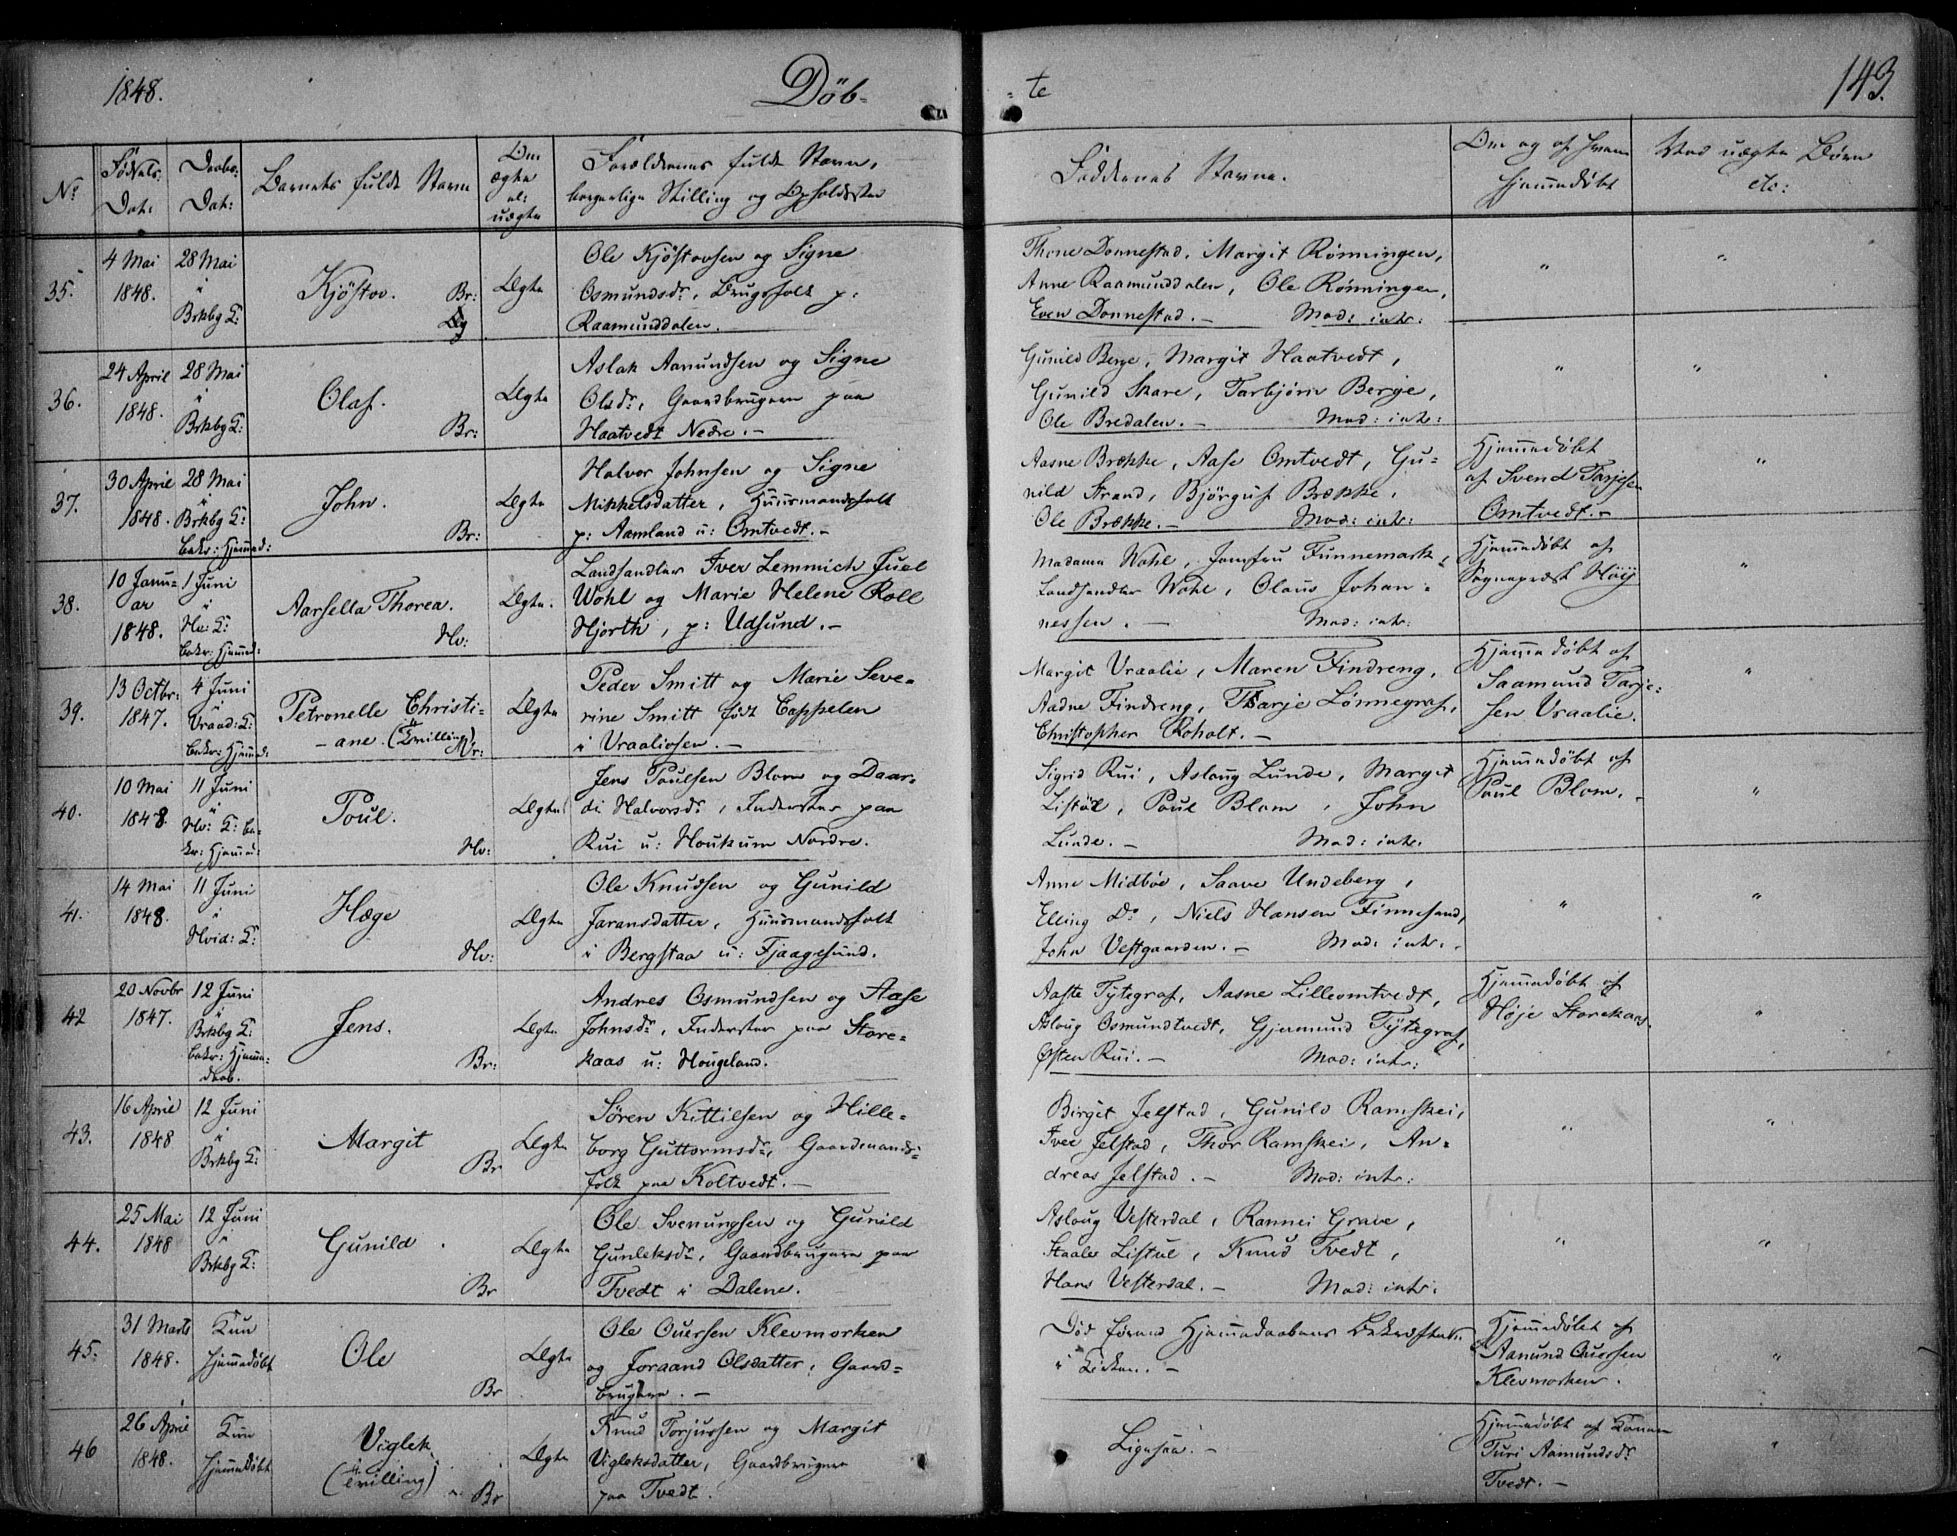 1848.
Döb-
-te
143.
No
Födsels-
Dat:
Daabs-
Dat:
Barnets fulde Navn
Om
ægte
el:
uægte
Forældrenes fulde Navn,
borgerlige Stilling og Opholdssted
Faddernes Navne.
Om og af hvem
hjemmedöbt
Ved uægte Börn
etc:
35.
4 Mai
1848.
28 Mai
i
Brkbg K:
Kjöstov.
Br:
Ægte
Ole Kjöstovsen og Signe
Osmundsdr, Brugsfolk p:
Raamunddalen.
Thone Donnestad, Margit Rönningen,
Anne Raamunddalen, Ole Rönningen,
Even Donnestad. — Mod: intr:
"
"
36.
24 April
1848.
28 Mai
i
Brkbg K:
Olaf.
Br:
Ægte
Aslak Aamundsen og Signe
Olsdr, Gaardbrugere paa
Haatvedt Nedre. —
Gunild Berge, Margit Haatvedt,
Gunild Skare, Tarbjörn Berge,
Ole Bredalen. — Mod: intr:
"
"
37.
30 April
1848.
28 Mai
i
Brkbg K:
Bekr: Hjemmed:
John.
Br:
Ægte
Halvor Johnsen og Signe
Mikkelsdatter, Huusmandsfolk
p: Aamland u: Omtvedt. —
Aasne Brække, Aase Omtvedt, Gu-
nild Strand, Björguf Brække,
Ole Brække. — Mod: intr:
Hjemmedöbt
af Svend Tarjesen
Omtvedt. —
"
38.
10 Janu-
ar
1848.
1 Juni
i
Hv: K:
Bekr: Hjemmed:
Aarsella Thorea.
Hv:
Ægte.
Landhandler Iver Lemmich Juel
Wohl og Marie Helene Roll
Hjorth, p: Udsund. —
Madame Wohl, Jomfru Funnemark,
Landhandler Wohl, Olaus Johan-
nessen. — Mod: intr:
Hjemmedöbt af
Sogneprest Höij
"
39.
13 Octbr:
1847.
4 Juni
i
Vraad: K:
Bekr: Hjemmed:
Petronelle Christi-
-ane. (Tvilling)
Nr:
Ægte
Peder Smitt og Marie Seve-
rine Smitt född Cappelen
i Vraaliosen. —
Margit Vraalie, Maren Findreng,
Aadne Findreng, Tarje Lönnegraf,
Christopher Roholt. —
Hjemmedöbt af
Saamund Tarje-
sen Vraalie.
"
40.
10 Mai
1848.
11 Juni
i
Hv: K: Be-
kr: Hjemmed:
Poul.
Hv:
Ægte
Jens Poulsen Blom og Daar-
di Halvorsdr, Inderster paa
Rui u: Houkum Nordre.
Sigrid Rui, Aslaug Lunde, Margit
Listöl, Poul Blom, John
Lunde. — Mod: intr.
Hjemmedöbt af
Poul Blom. —
"
41.
14 Mai
1848.
11 Juni
i
Hvid: K:
Hæge
Hv:
Ægte
Ole Knudsen og Gunild
Jaransdatter, Huusmandsfolk
i Bergstaa u: Fjaagesund.
Anne Midböe, Saave Undeberg,
Elling Do, Niels Hansen Finnesand,
John Vestgaarden. — Mod: intr:
"
"
42
20 Novbr
1847.
12 Juni
i
Brkbg K:
Bekr: Hjemme-
daab.
Jens.
Br:
Ægte
Andres Osmundsen og Aase
Johnsdr, Inderster paa Store-
kaas u: Hougeland.
Aaste Tytegraf, Aasne Lilleomtvedt,
Aslaug Osmundtvedt, Gjermund Tytegraf,
Østen Rui. — Mod: intr:
Hjemmedöbt af
Höje Storekaas.
"
43.
16 April
1848
12 Juni
i
Brkbg K:
Margit
Br
Ægte
Sören Kittilsen og Hille-
borg Guttormsdr, Gaardmands-
folk paa Koltvedt. —
Birgit Jelstad, Gunild Ramskei,
Iver Jelstad, Thor Ramskei, An-
dreas Jelstad. — Mod: intr:
"
"
44.
25 Mai
1848
12 Juni
i
Brkbg K:
Gunild
Br
Ægte
Ole Svenungsen og Gunild
Gunleksdr, Gaardbrugere paa
Tvedt i Dalene.
Aslaug Vesterdal, Rannei Grave,
Staale Listul, Knud Tvedt,
Hans Vesterdal. — Mod: intr.
"
"
45.
31 Marts
1848.
Kun
hjemmedöbt
Ole
Br
Ægte
Ole Ouersen Klevmorken
og Joraand Olsdatter, Gaard-
brugere. —
Död förend Hjemmedaabens Bekræftelse
i Kirken. —
Hjemmedöbt af
Aanund Ouersen
Klevmorken.
"
46
26 April
1848.
Kun
hjemmedöbt
Viglek
(Tvilling)
Br
Ægte
Knud Torjussen og Margit
Vigleksdatter, Gaardbrugere
paa Tvedt.
Ligesaa. —
Hjemmedöbt af Konen
Turi Aamundsdr
Tvedt. —
"